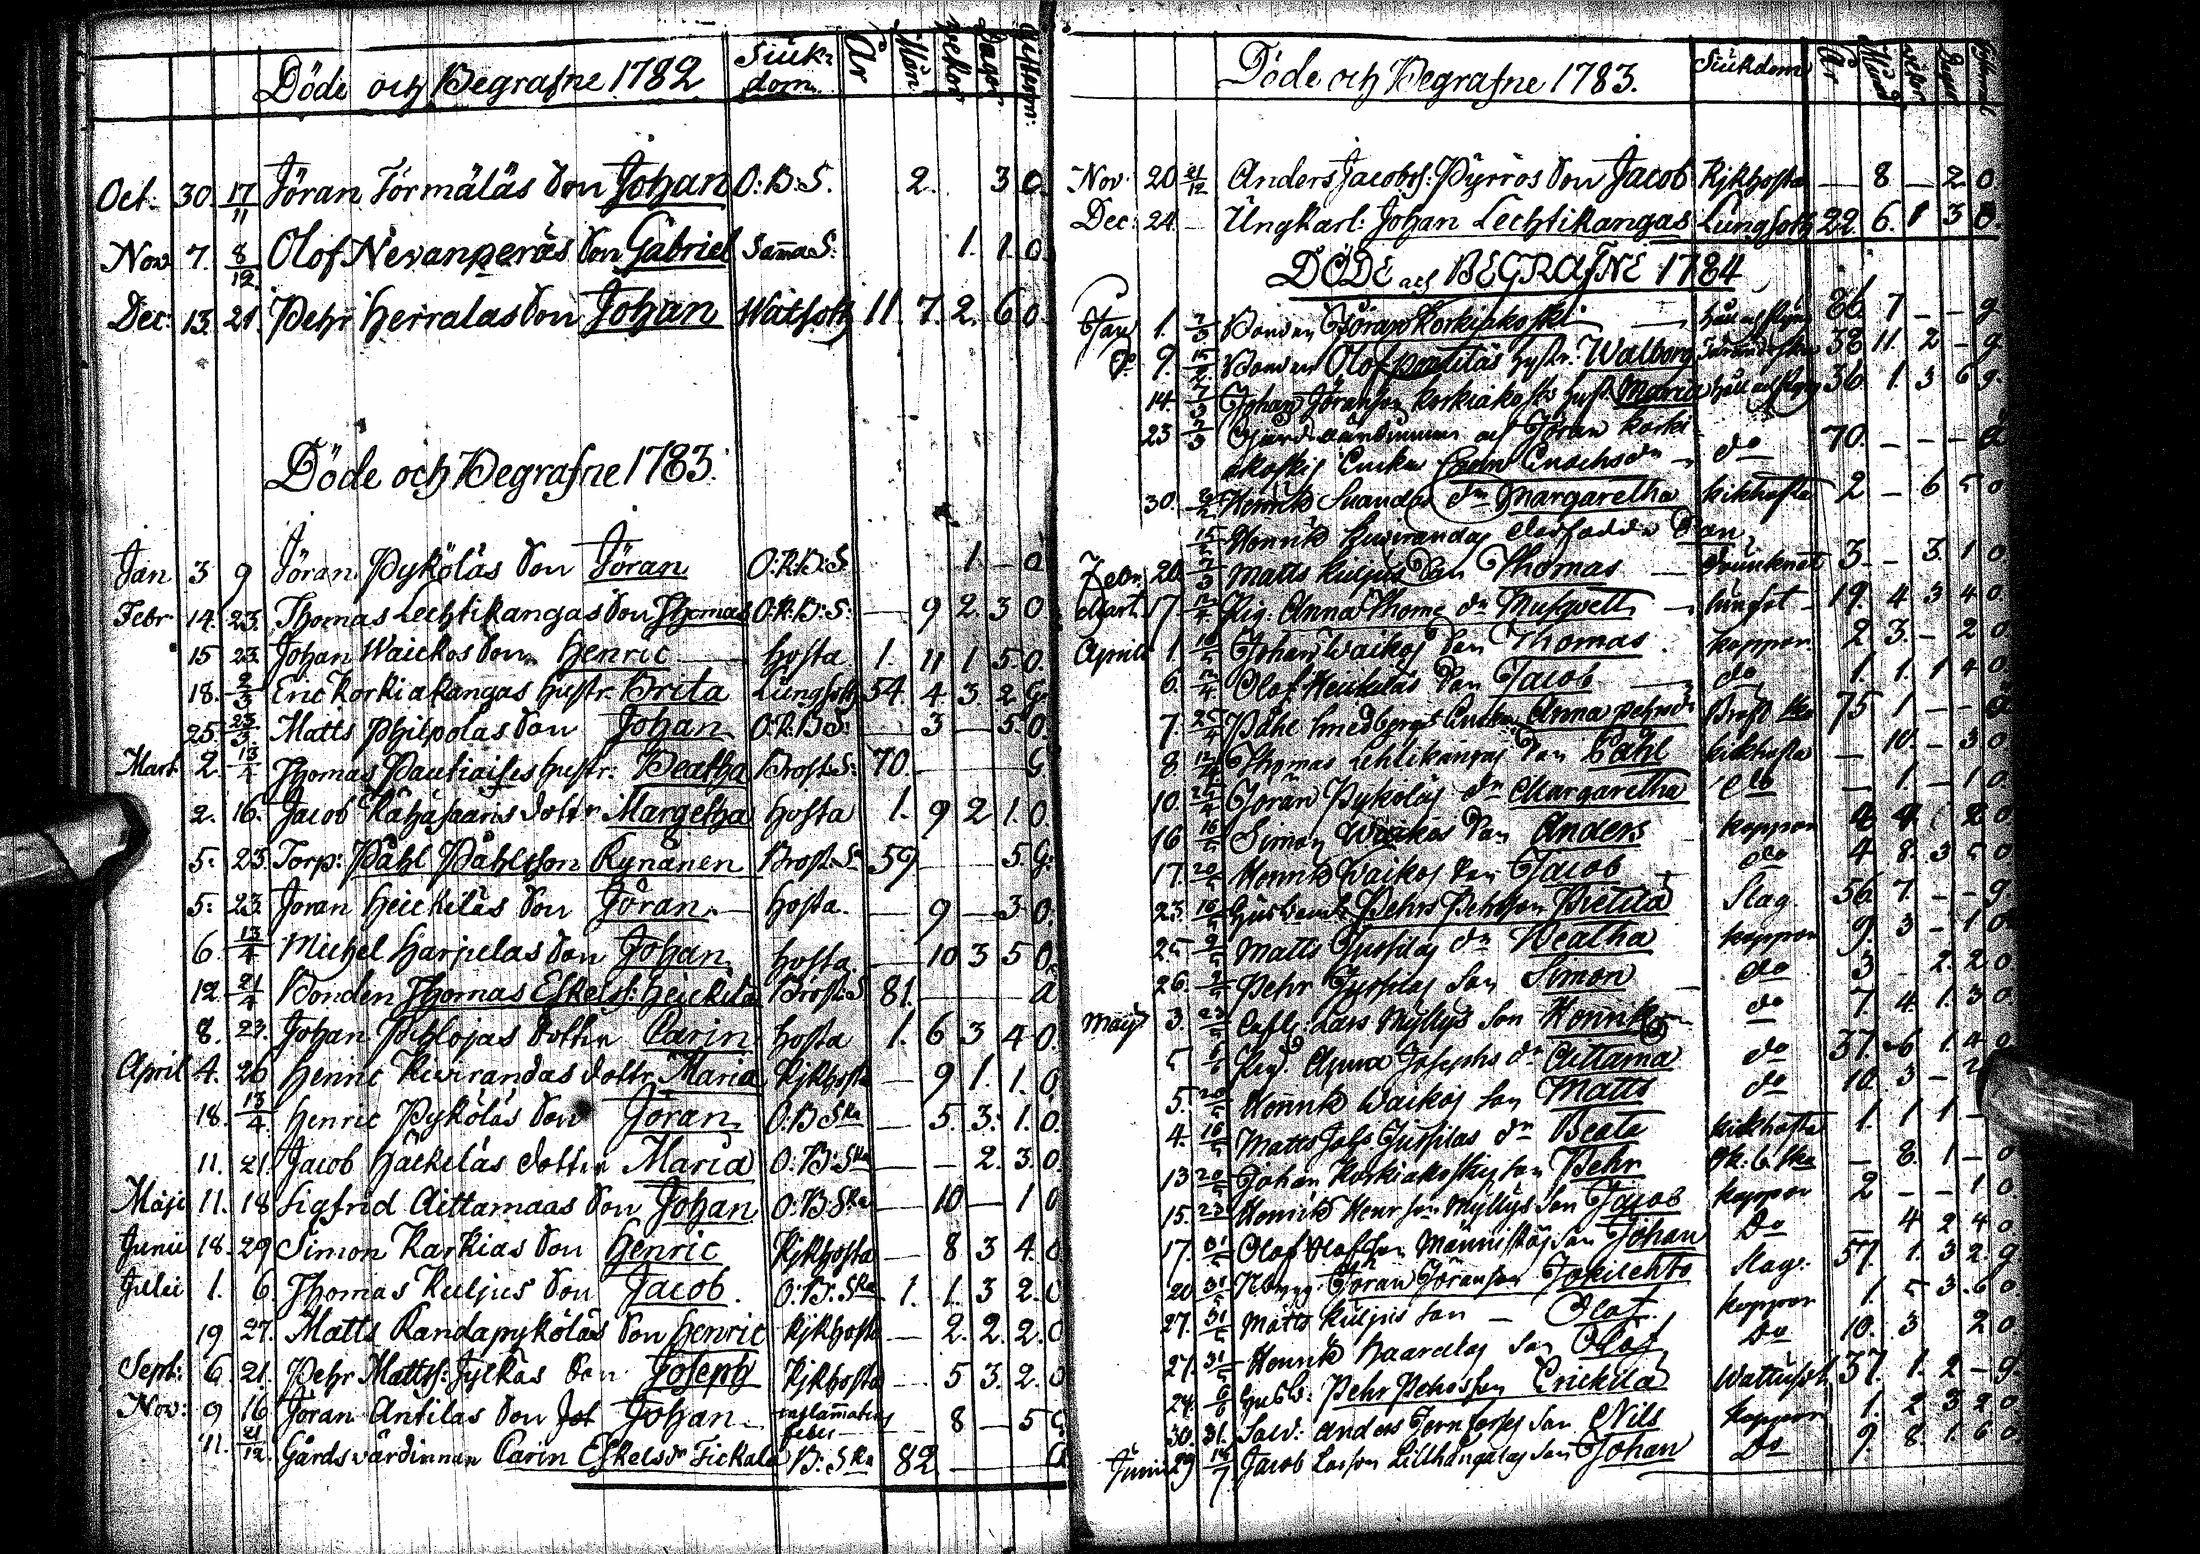 Döde och Begrafne 1782 Siuk- dom. År Mån: wekor Dagar
Oct: 30. 17/11 Jöran Törmäläs Son Johan O:B:S. 2. 3 O.
Nov 7. 8/12 Olof Nevanperäs Son Gabriel Samma S: 1. 1. O.
Dec: 13. 21. Pehr Herralas Son Johan Wattsoth 11. 7. 2. 6 O.
Döde och Begrafne 1783.
Jan 3 9 Jöran Pyköläs Son Jöran O:K:B:S 1. – O
Febr 14. 23. Thomas Lechtikangas Son Thomas O:K:B:S: – 9 2. 3 O
15 23. Johan Waickos Son Henric hosta 1. 11 1 5. O.
18. 2/3 Eric Korkiakangas hustr. Brita Lungsoth 54. 4 3. 2 G:
25. 23/3 Matts Philpolas Son Johan O:K:B:S: – 3 – 5. O.
Mart 2. 13/4 Thomas Pautiaises hustr: Beatha Brost:S: 70. G
2. 16. Jacob Kähäsaaris dottr Margetha hosta 1. 9 2 1. O.
5: 23. Torp: Påhl Påhlsson Rynänen Brost:S: 59 5 G:
5: 23. Jöran Heickiläs Son Jöran hosta. – 9 – 3 O.
6. 13/4 Michel Harjulas Son Johan hosta – 10 3 5 O.
12. 21/4 Bonden Thomas Eskels: Heickilä Brost:S 81. a
8. 23. Johan Pehlojas dotter Carin hosta 1. 6 3 4 O.
April 4. 26 Henric Kuirandas dottr Maria Kjkhosta – 9 1. 1. O
18. 13/4 Henric Pyköläs Son Jöran O:B Ska – 5. 3. 1. O.
11. 21. Jacob Häckiläs dotter Maria O:B:Ska – – 2. 3. O.
Maji 11. 18 Sigfrid Aittamaas Son Johan O:B:Ska – 10 – 1 O
Junii 18. 29 Simon Karkias Son Henric Kjkhosta – 8 3 4. O
Julii 1. 6. Thomas Kuljus Son Jacob. O:Br:Ska 1. 1. 3 2. O
19 27. Matts Randapyköläs Son Henric Kjkhosta – 2. 2. 2. O
Sept: 6 21. Pehr Matts: Jylkäs Son Joseph Kjkhosta – 5 3. 2. O
Nov: 9 16 Jöran Antilas Son Johan inflammations feber – 8 – 5
11. 21/12. Gårdswärdinnan Carin Eskelsdr Fickala B:Ska 82
Döde och Begrafne 1783. Siukdom År Månad wekor Dagar
Nov: 20 21/12 Anders Jacobs: Pyrrös Son Jacob Kjkhosta – 8 – 2 O
Dec: 24. – Ungkarl: Johan Lechtikangas Lungsoth 22. 6. 1 3 O.
DÖDE och BEGRAFNE 1784
Jan 1. 7/3 Bonden Jöran Korkiakoski 86 7 – – g
do 9. 15/2 Bonden Olof hustr: Walborg 38 11. 2 – g
14. 7/3 Johan Jöransson Korkiakoskis hust. Maria 36 1. 3 6 g.
23 7/3 Gårdswärdinnan och Jöran Korki- do 70. – – –
akoskis Enka Carin Enochsdr
30. Henrik dr Margaretha kikhosta 2 – 6 5 O
15/2 Henrik Kuirandas Son
Febr. 20. 7/3 Matts Kuljus Son Thomas drunknat 3 – 3. 1 O
Mart. 17. 12/4 Pig. Anna Thome dr lungsot 19. 4 3 4 O.
Aprill 1. Johan Waikos Son Thomas koppor. 2 3. – 2 O
6. Olof Heickiläs Son Jacob do 1. 1. 1 4 O
7. 25/4 Påhl Smedbergs Enka Anna Pehrsdr Bröst ska 75 1 – –
8. 12/4 Thomas Lehtikangas Son Påhl kikhosta – 10. – 3 O
10. 25/4 Jöran Pyköläs dr Margaretha do – 1. – 1 O
16 16/5 Simon Waikos Son Anders koppor
17. 20/5 Henrik Waikos Son Jacob do 4 8. 3 5 O
23. 16/5 Husbond Pehr Pehrsson Pietilä Slag. 56. 7. – – g
25 9/5 Matts Jussilas dr Beatha koppor 9. 3 – 1 O
26. 9/5 Pehr Jussilas Son Simon do 3 – 2. 2 O
Maij 3. 23/5 Lars Myllys Son Henrik do 7. 4. 1. 3 O
5 Pig. Anna Josephs dr Aittama do 37. 6 1. 4
5. 20/5 Henrik Waikos Son Matts do 10. 3 –
4. 16/5 Matts Johs: Jussilas dr Beata kikhosta 1. 1 1 –
13 20/5 Johan Korkiakoskis Son Pehr – 8. 1 – O
15. 23/5 Henrik Henrsson Myllys Son Jacob koppor 2 – – 1 O
17. 31/5 Olof Olofsson Männistös Son Johan Do – 4 2 4 O
20 31/5 Jöran Jöransson Jokilehto Slag. 57. 1. 3 2. g
27. 31/5 Matts Kuljus Son – Olof. koppor 1. 5 3. 6 O
27. 31/5 Henrik Haaralas Son Olof Do 10. 3 2 O
24. 6/6 Husb: Pehr Pehrsson Erickilä Wattusot 37. 1. 2 – g
30. 31. Sold: Anders Son Nils koppor 1. 2 3 2 O
Junii 29 Jacob Larsson Lillkangas Son Johan Do 9. 8. 1. 6 O